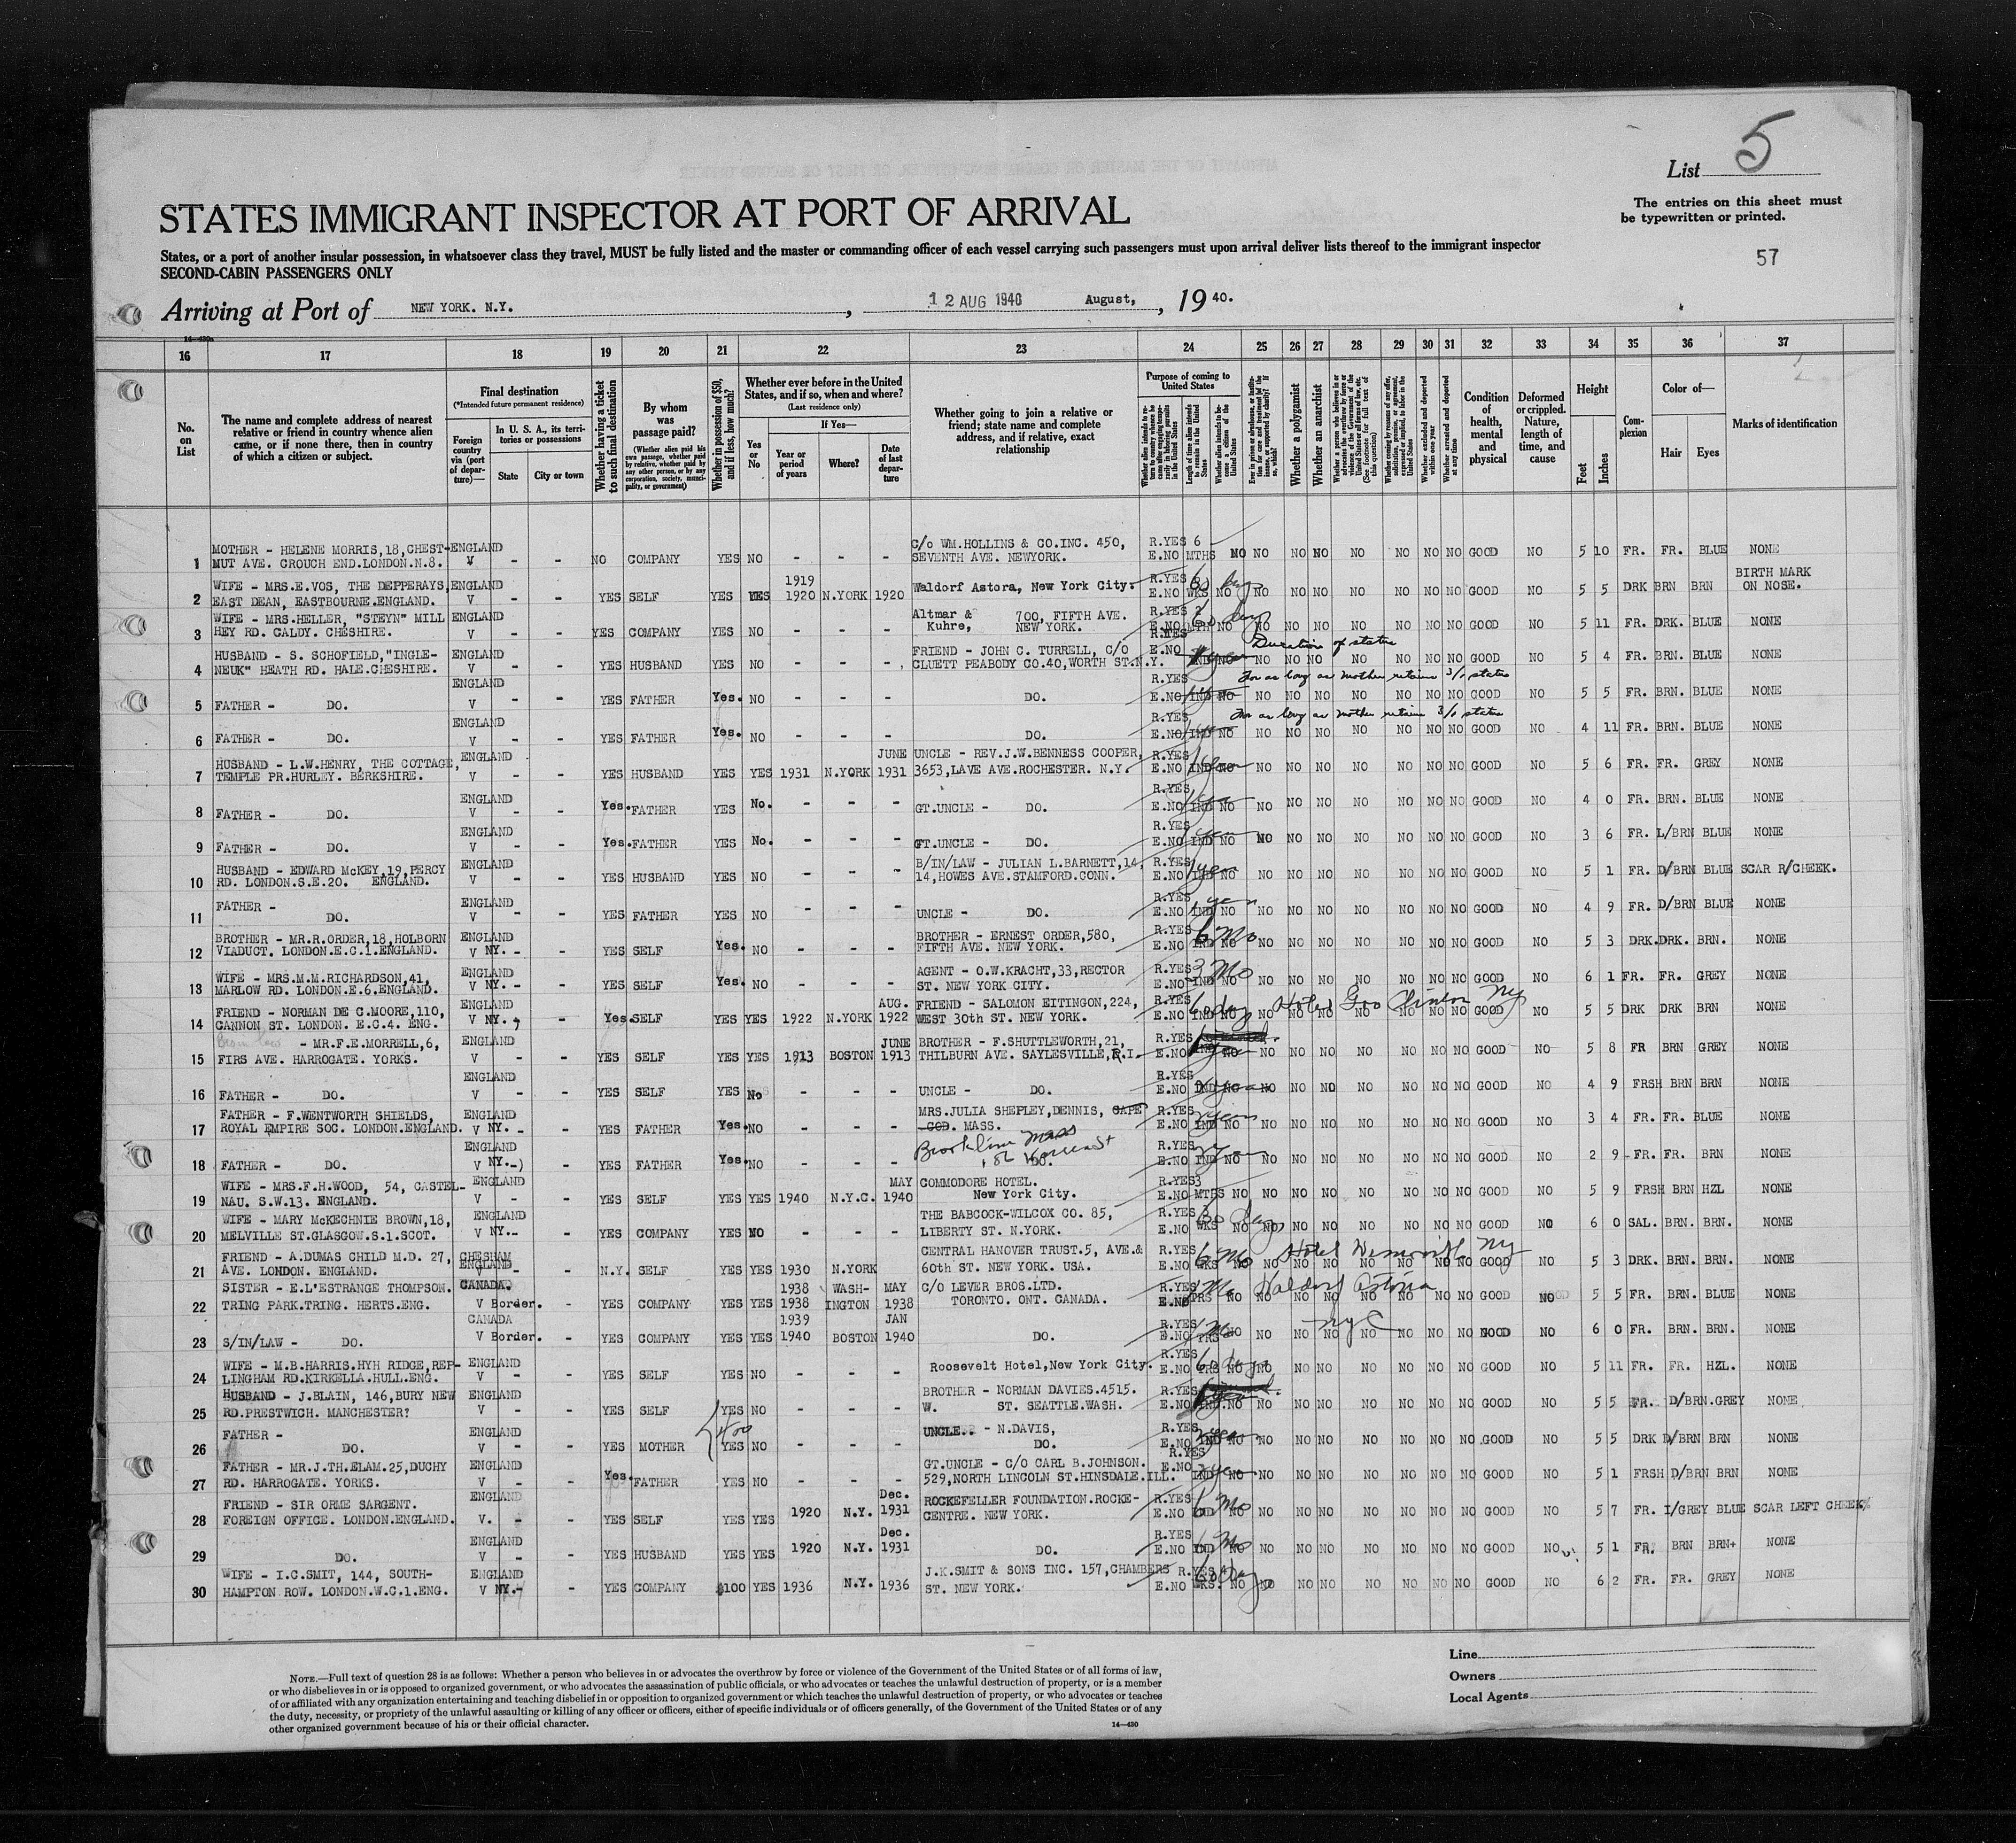 List 5
The entries on this sheet must
be typewritten or printed.
57
STATES IMMIGRANT INSPECTOR AT PORT OF ARRIVAL
States, or a port of another insular possession, in whatsoever class they travel, MUST be fully listed and the master or commanding officer of each vessel carrying such passengers must upon arrival deliver lists thereof to the immigrant inspector
SECOND-CABIN PASSENGERS ONLY
Arriving at Port of NEW YORK. N.Y., 12 AUG 1940 August, , 19 40.
16 17 18 19 20 21 22 23 24 25 26 27 28 29 30 31 32 33 34 35 36 37
No. on List
The name and complete address of nearest relative or friend in country whence alien came, or if none there, then in country of which a citizen or subject.
Final destination
(*Intended future permanent residence)
Foreign country via (port of departure)—
In U. S. A., its territories or possessions
State
City or town
Whether having a ticket to such final destination
By whom was passage paid?
(Whether alien paid his own passage, whether paid by relative, whether paid by any other person, or by any corporation, society, municipality, or government)
Whether in possession of $50, and if less, how much?
Whether ever before in the United States, and if so, when and where?
(Last residence only)
Yes or No
If Yes—
Year or period of years
Where?
Date of last departure
Whether going to join a relative or friend; state name and complete address, and if relative, exact relationship
Purpose of coming to United States
Length of time alien intends to remain in the United States
Whether alien intends to become a citizen of the United States
Whether a polygamist
Whether an anarchist
Whether excluded and deported within one year
Whether arrested and deported at any time
Condition of health, mental and physical
Deformed or crippled. Nature, length of time, and cause
Height
Feet
Inches
Complexion
Color of—
Hair
Eyes
Marks of identification
1 MOTHER - HELENE MORRIS,18,CHEST- ENGLAND C/o WM.HOLLINS & CO.INC. 450, R.YES 6
MUT AVE. CROUCH END.LONDON.N.8. V - - NO COMPANY YES NO - - - SEVENTH AVE. NEWYORK. E.NO MTHS NO NO NO NO NO NO NO NO GOOD NO 5 10 FR. FR. BLUE NONE
2 WIFE - MRS.E.VOS, THE DEPPERAYS, ENGLAND 1919 Waldorf Astora, New York City. R.YES 60 days BIRTH MARK
EAST DEAN, EASTBOURNE.ENGLAND. V - - YES SELF YES YES 1920 N.YORK 1920 E.NO WKS NO NO NO NO NO NO NO NO GOOD NO 5 5 DRK BRN BRN ON NOSE.
3 WIFE - MRS.HELLER, "STEYN" MILL ENGLAND Altmar & 700, FIFTH AVE. R.YES 2 60 days
HEY RD. CALDY. CHESHIRE. V - - YES COMPANY YES NO - - - Kuhre, NEW YORK. E.NO MTH NO NO NO NO NO NO NO NO GOOD NO 5 11 FR. DRK. BLUE NONE
4 HUSBAND - S. SCHOFIELD,"INGLE- ENGLAND FRIEND - JOHN C. TURRELL, C/O R.YES Duration of status
NEUK" HEATH RD. HALE.CHESHIRE. V - - YES HUSBAND YES NO - - - CLUETT PEABODY CO.40,WORTH ST.N.Y. E.NO IND NO NO NO NO NO NO NO NO GOOD NO 5 4 FR. BRN. BLUE NONE
5 ENGLAND R.YES For as long as mother retains 3/1 status
FATHER - DO. V - - YES FATHER Yes. NO - - - DO. E.NO IND NO NO NO NO NO NO NO NO GOOD NO 5 5 FR. BRN. BLUE NONE
6 ENGLAND R.YES For as long as mother retains 3/1 status
FATHER - DO. V - - YES FATHER Yes. NO - - - DO. E.NO IND NO NO NO NO NO NO NO NO GOOD NO 4 11 FR. BRN. BLUE NONE
7 HUSBAND - L.W.HENRY, THE COTTAGE, ENGLAND JUNE UNCLE - REV.J.W.BENNESS COOPER, R.YES 1 year
TEMPLE PR.HURLEY. BERKSHIRE. V - - YES HUSBAND YES YES 1931 N.YORK 1931 3653,LAVE AVE.ROCHESTER. N.Y. E.NO IND NO NO NO NO NO NO NO NO GOOD NO 5 6 FR. FR. GREY NONE
8 FATHER - DO. ENGLAND V - - Yes. FATHER YES No. - - - GT.UNCLE - DO. R.YES E.NO IND NO 1 year NO NO NO NO NO NO NO GOOD NO 4 0 FR. BRN. BLUE NONE
9 FATHER - DO. ENGLAND V - - Yes. FATHER YES No. - - - GT.UNCLE - DO. R.YES E.NO IND NO 1 year NO NO NO NO NO NO NO GOOD NO 3 6 FR. L/BRN BLUE NONE
10 HUSBAND - EDWARD McKEY,19,PERCY ENGLAND B/IN/LAW - JULIAN L.BARNETT,14, R.YES 1 year
RD. LONDON.S.E.20. ENGLAND. V - - YES HUSBAND YES NO - - - 14,HOWES AVE.STAMFORD.CONN. E.NO IND NO NO NO NO NO NO NO NO GOOD NO 5 1 FR. D/BRN BLUE SCAR R/CHEEK.
11 FATHER - ENGLAND R.YES 1 year
DO. V - - YES FATHER YES NO - - - UNCLE - DO. E.NO IND NO NO NO NO NO NO NO NO GOOD NO 4 9 FR. D/BRN BLUE NONE
12 BROTHER - MR.R.ORDER,18,HOLBORN ENGLAND BROTHER - ERNEST ORDER,580, R.YES 6 Mo
VIADUCT. LONDON.E.C.1.ENGLAND. V NY. - - YES SELF Yes. NO - - - FIFTH AVE. NEW YORK. E.NO IND NO NO NO NO NO NO NO NO GOOD NO 5 3 DRK. DRK. BRN. NONE
13 WIFE - MRS.M.M.RICHARDSON,41, ENGLAND AGENT - O.W.KRACHT,33,RECTOR R.YES 3 Mo
MARLOW RD. LONDON.E.6.ENGLAND. V NY. - - YES SELF Yes. NO - - - ST. NEW YORK CITY. E.NO IND NO NO NO NO NO NO NO NO GOOD NO 6 1 FR. FR. GREY NONE
14 FRIEND - NORMAN DE C.MOORE,110, ENGLAND AUG. FRIEND - SALOMON EITINGON,224, R.YES 60 days Hotel Gov Clinton NY
CANNON ST. LONDON. E.C.4. ENG. V NY. - - Yes. SELF YES YES 1922 N.YORK 1922 WEST 30th ST. NEW YORK. E.NO IND NO NO NO NO NO NO NO NO GOOD NO 5 5 DRK DRK BRN NONE
15 Bro in law - MR.F.E.MORRELL,6, ENGLAND JUNE BROTHER - F.SHUTTLEWORTH,21, R.YES
FIRS AVE. HARROGATE. YORKS. V - - YES SELF YES YES 1913 BOSTON 1913 THILBURN AVE. SAYLESVILLE,R.I. E.NO NO NO NO NO NO NO NO NO GOOD NO 5 8 FR BRN GREY NONE
16 FATHER - DO. ENGLAND V - - YES SELF YES No - - - UNCLE - DO. R.YES E.NO IND NO NO NO NO NO NO NO NO GOOD NO 4 9 FRSH BRN BRN NONE
17 FATHER - F.WENTWORTH SHIELDS, ENGLAND MRS.JULIA SHEPLEY,DENNIS, CAPE R.YES 2 years
ROYAL EMPIRE SOC. LONDON.ENGLAND. V NY. - - YES FATHER Yes. NO - - - COD. MASS. E.NO IND NO NO NO NO NO NO NO NO GOOD NO 3 4 FR. FR. BLUE NONE
Brookline Mass
18 ENGLAND 182 Warren St R.YES
FATHER - DO. V NY. - - YES FATHER Yes. NO - - - DO. E.NO IND NO NO NO NO NO NO NO NO GOOD NO 2 9 FR. FR. BRN NONE
19 WIFE - MRS.F.H.WOOD, 54, CASTEL- ENGLAND MAY COMMODORE HOTEL. R.YES 3
NAU. S.W.13. ENGLAND. V - - YES SELF YES YES 1940 N.Y.C. 1940 New York City. E.NO MTHS NO NO NO NO NO NO NO NO GOOD NO 5 9 FRSH BRN HZL NONE
20 WIFE - MARY McKECHNIE BROWN,18, ENGLAND THE BABCOCK-WILCOX CO. 85, R.YES 3 60 days
MELVILLE ST.GLASGOW.S.1.SCOT. V NY. - - YES COMPANY YES NO - - - LIBERTY ST. N.YORK. E.NO WKS NO NO NO NO NO NO NO NO GOOD NO 6 0 SAL. BRN. BRN. NONE
21 FRIEND - A.DUMAS CHILD M.D. 27, CHESHAM ENGLAND CENTRAL HANOVER TRUST.5, AVE.& R.YES 6 Mo NY
AVE. LONDON. ENGLAND. V - - N.Y. SELF YES YES 1930 N.YORK 60th ST. NEW YORK. USA. E.NO WKS NO NO NO NO NO NO NO NO GOOD NO 5 3 DRK. BRN. BRN. NONE
22 SISTER - E.L'ESTRANGE THOMPSON. CANADA. 1938 WASH- MAY C/O LEVER BROS.LTD. R.YES Mo Waldorf Astoria
TRING PARK.TRING. HERTS.ENG. V Border. - YES COMPANY YES YES 1938 INGTON 1938 TORONTO. ONT. CANADA. E.NO NO NO NO NO NO NO NO NO GOOD NO 5 5 FR. BRN. BLUE NONE
23 CANADA 1939 JAN R.YES NYC
S/IN/LAW - DO. V Border. - YES COMPANY YES YES 1940 BOSTON 1940 DO. E.NO NO NO NO NO NO NO NO NO GOOD NO 6 0 FR. BRN. BRN. NONE
24 WIFE - M.B.HARRIS.HYH RIDGE,REP- ENGLAND Roosevelt Hotel,New York City. R.YES 60 days
LINGHAM RD.KIRKELLA.HULL.ENG. V - - YES SELF YES NO - - - E.NO NO NO NO NO NO NO NO NO GOOD NO 5 11 FR. FR. HZL. NONE
25 HUSBAND - J.BLAIN, 146,BURY NEW ENGLAND BROTHER - NORMAN DAVIES.4515. R.YES
RD.PRESTWICH. MANCHESTER? V - - YES SELF YES NO - - - W. ST. SEATTLE.WASH. E.NO IND. NO NO NO NO NO NO NO NO GOOD NO 5 5 FR. D/BRN. GREY NONE
$400
26 FATHER - ENGLAND UNCLE. - N.DAVIS, R.YES
DO. V - - YES MOTHER YES NO - - - DO. E.NO IND NO NO NO NO NO NO NO NO GOOD NO 5 5 DRK D/BRN BRN NONE
27 FATHER - MR.J.TH.ELAM.25,DUCHY ENGLAND GT.UNCLE - C/O CARL B.JOHNSON. R.YES
RD. HARROGATE. YORKS. V - - Yes. FATHER YES NO - - - 529,NORTH LINCOLN ST.HINSDALE.ILL. E.NO IND NO NO NO NO NO NO NO NO GOOD NO 5 1 FRSH D/BRN BRN NONE
28 FRIEND - SIR ORME SARGENT. ENGLAND Dec. ROCKEFELLER FOUNDATION.ROCKE- R.YES 6 Mo
FOREIGN OFFICE. LONDON.ENGLAND. V. - - YES SELF YES YES 1920 N.Y. 1931 CENTRE. NEW YORK. E.NO IND NO NO NO NO NO NO NO NO GOOD NO 5 7 FR. I/GREY BLUE SCAR LEFT CHEEK
29 ENGLAND Dec. R.YES 6 Mo
DO. V - - YES HUSBAND YES YES 1920 N.Y. 1931 DO. E.NO IND NO NO NO NO NO NO NO NO GOOD NO 5 1 FR. BRN BRN+ NONE
30 WIFE - I.C.SMIT, 144, SOUTH- ENGLAND J.K.SMIT & SONS INC. 157,CHAMBERS R.YES 60 days
HAMPTON ROW. LONDON.W.C.1.ENG. V NY. - - YES COMPANY $100 YES 1936 N.Y. 1936 ST. NEW YORK. E.NO WKS. NO NO NO NO NO NO NO NO GOOD NO 6 2 FR. FR. GREY NONE
NOTE.—Full text of question 28 is as follows: Whether a person who believes in or advocates the overthrow by force or violence of the Government of the United States or of all forms of law,
or who disbelieves in or is opposed to organized government, or who advocates the assassination of public officials, or who advocates or teaches the unlawful destruction of property, or is a member
of or affiliated with any organization entertaining and teaching disbelief in or opposition to organized government or which teaches the unlawful destruction of property, or who advocates or teaches
the duty, necessity, or propriety of the unlawful assaulting or killing of any officer or officers, either of specific individuals or of officers generally, of the Government of the United States or of any
other organized government because of his or their official character.
14—430
Line
Owners
Local Agents